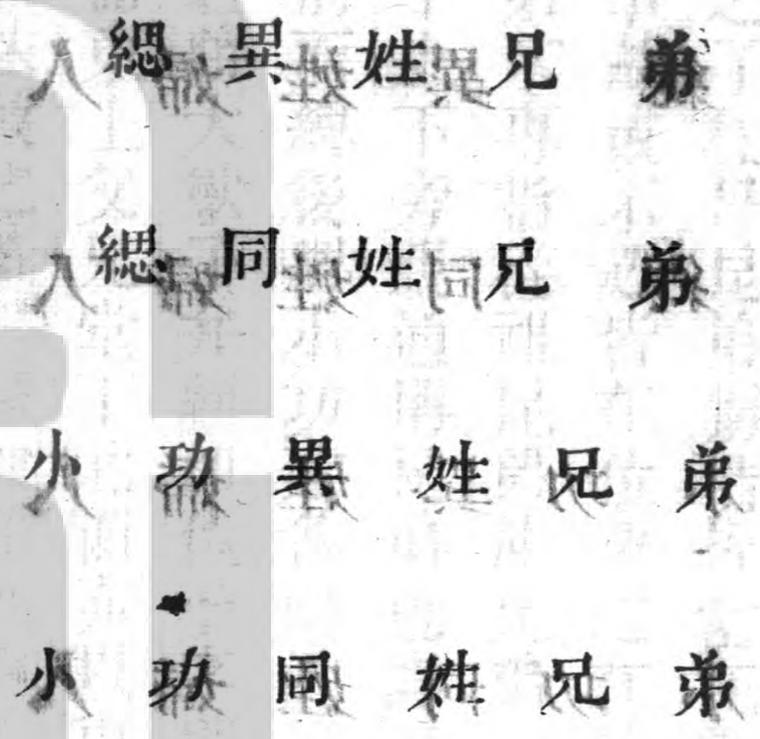 緦異姓兄弟
緦同姓兄弟
小功異姓兄弟
小功同姓兄弟